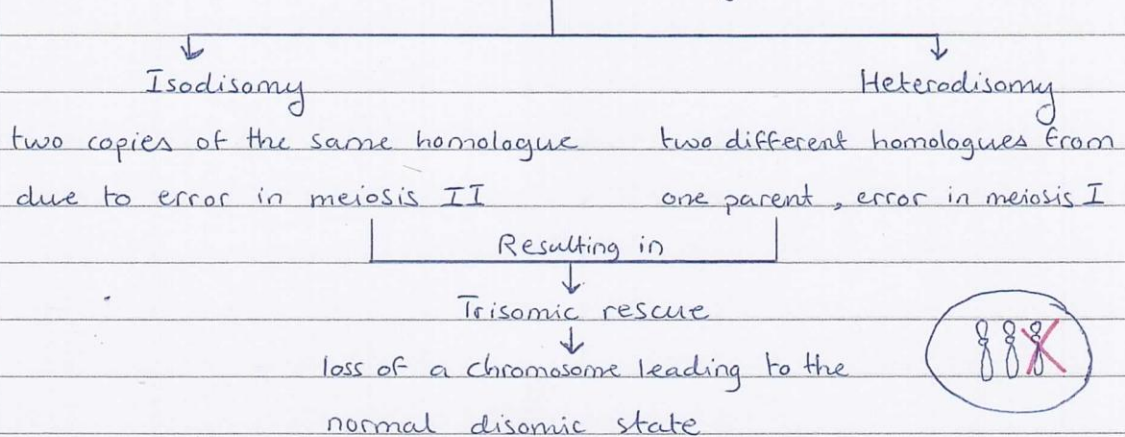 Isodisomy
Heterodisomy
two copies of the same homologue
due to error in meiosis II
two different homologues from
one parent, error in meiosis I
Resulting in
Trisomic rescue
loss of a chromosome leading to the
normal disomic state